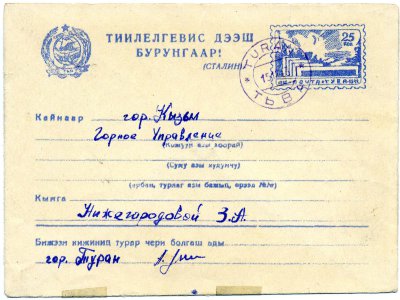 ТИИЛЕЛГЕВИС ДЭЭШ
БУРУНГААР!
(СТАЛИН)
25
КОП.
ПОЧТА ТУВА
TURAN
ТЬВА
Кайнаар гор. Кызыл
Горное Управление
(Кожуун азы хоорай)
(Суму азы кудумчу)
(арбан, турлаг азы бажың, өрээл №№)
Кымга
Нижагородовой З.А.
Бижээн кижиниң турар чери болгаш ады
гор. Туран